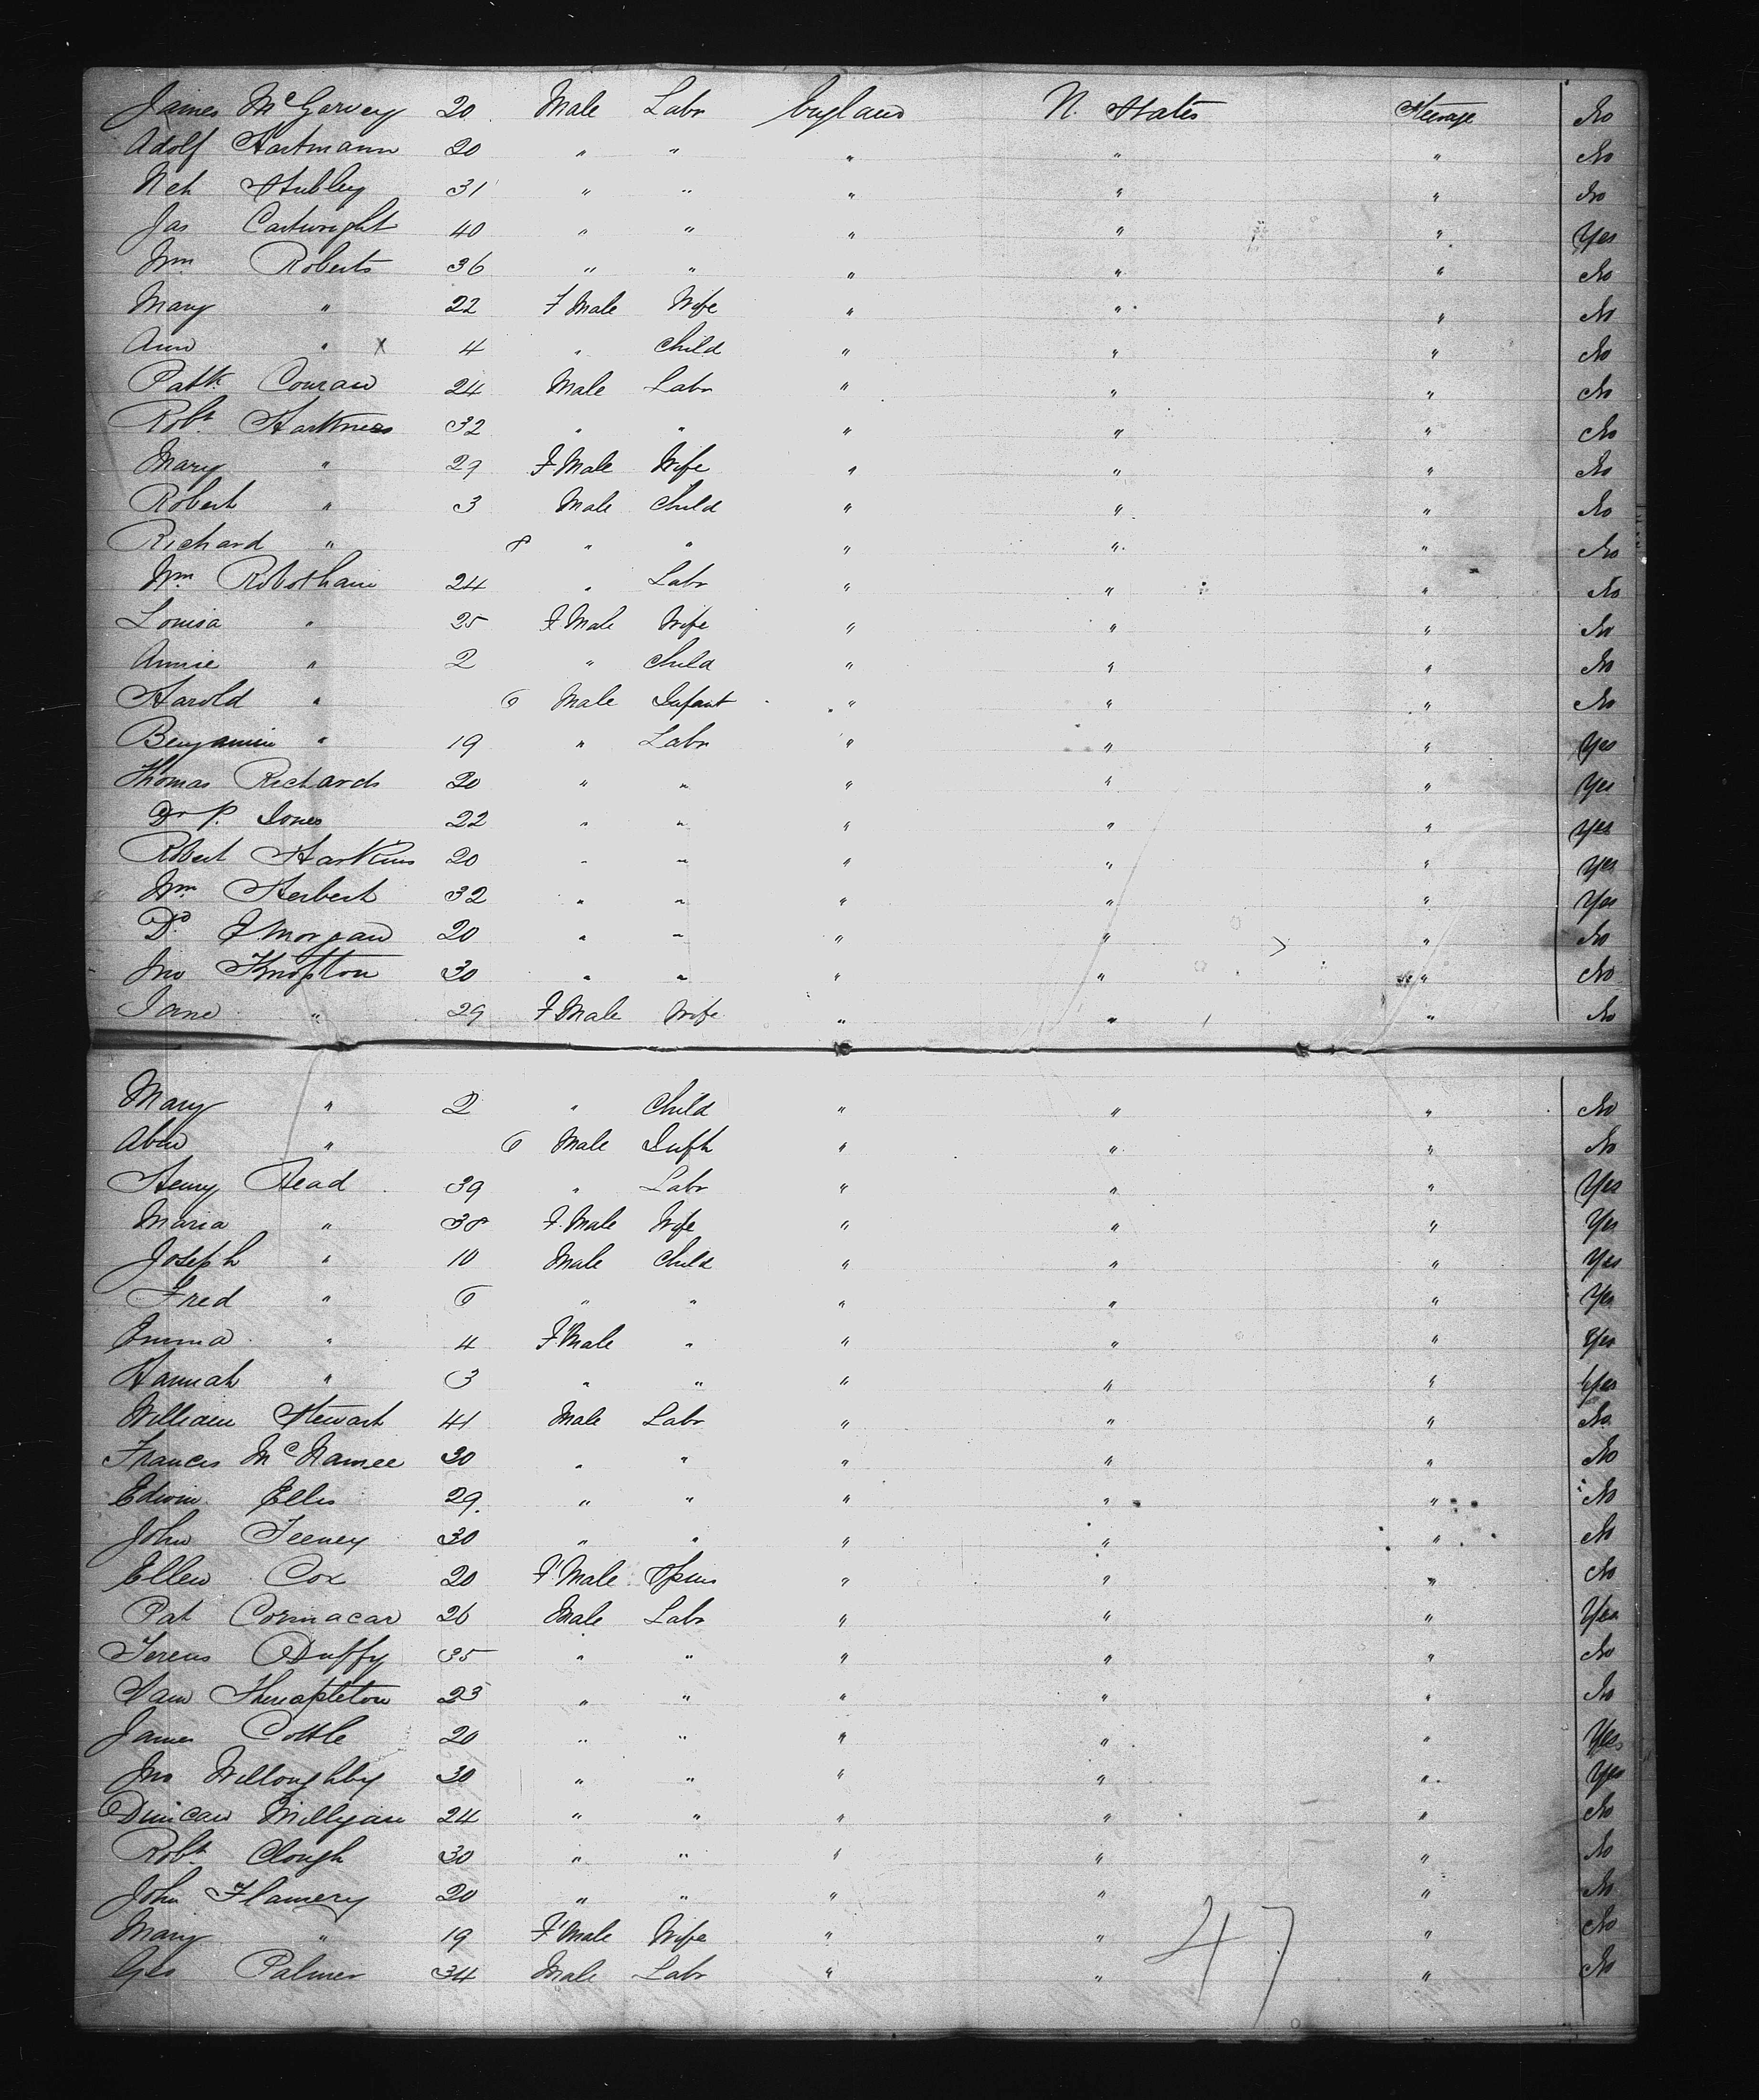 James McGarvey 20 Male Labr England U. States Steerage No
Adolf Hartmann 20 " " " " " No
Neh Stubley 31 " " " " " No
Jas Cartwright 40 " " " " " Yes
Wm Roberts 36 " " " " " No
Mary " 22 F Male Wife " " " No
Ann " X 4 " Child " " " No
Patk Conran 24 Male Labr " " " No
Robt Harkness 32 " " " " " No
Mary " 29 F Male Wife " " " No
Robert " 3 Male Child " " " No
Richard " 8 " " " " " No
Wm Robotham 24 " Labr " " " No
Louisa " 25 F Male Wife " " " No
Annie " 2 " Child " " " No
Harold " 6 Male Infant " " " No
Benjamin " 19 " Labr " " " Yes
Thomas Richards 20 " " " " " Yes
P. Jones 22 " " " " " Yes
Robert Harkins 20 " " " " " Yes
Wm Herbert 32 " " " " " Yes
Dd F Morgan 20 " " " " " No
Jno Knopton 30 " " " " " No
Jane " 29 F Male Wife " " " No
Mary " 2 " Child " " " No
" 6 Male Inft " " " No
Henry Head 39 " Labr " " " Yes
Maria " 38 F. Male Wife " " " Yes
Joseph " 10 Male Child " " " Yes
Fred " 6 " " " " " Yes
Emma " 4 F Male " " " " Yes
Hannah " 3 " " " " " Yes
William Stewart 41 Male Labr " " " No
Frances McNamee 30 " " " " " No
Edwin Ellis 29 " " " " " No
John Feeney 30 " " " " " No
Ellen Cox 20 F. Male Spins " " " No
Pat Cormacan 26 Male Labr " " " Yes
Terens Duffy 35 " " " " " No
Sam 23 " " " " " No
James Cottle 20 " " " " " Yes
Jno Willoughby 30 " " " " " Yes
Duncan Millygan 24 " " " " " No
Robt Clough 30 " " " " " No
John Flamery 20 " " " " " No
Mary " 19 F Male Wife " " " No
Geo Palmer 34 Male Labr " " " No
47